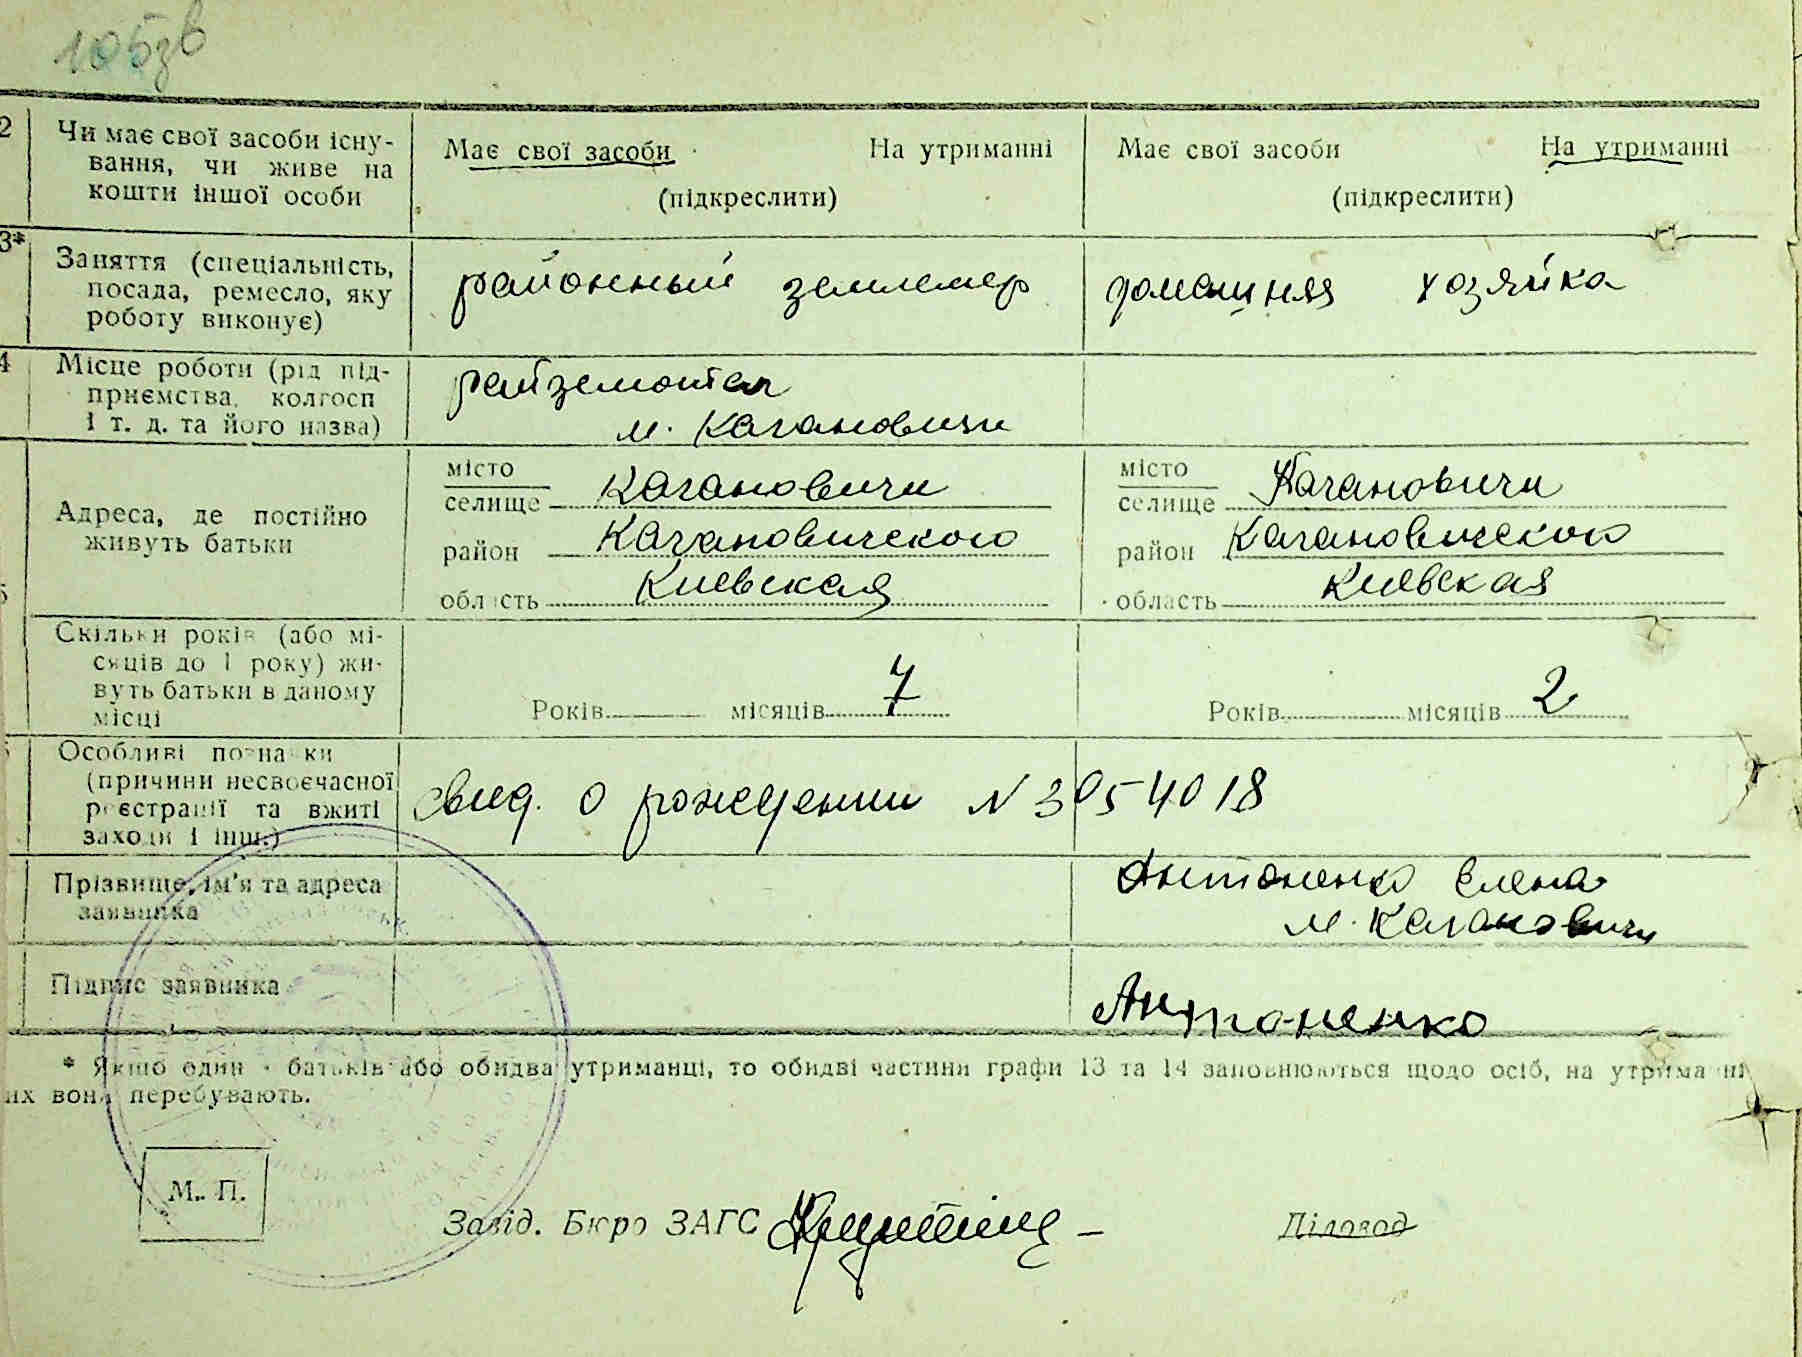 105зв
2 Чи має свої засоби існу- Має свої засоби На утриманні Має свої засоби На утриманні
вання, чи живе на
кошти іншої особи (підкреслити) (підкреслити)
3* Заняття (спеціальність, районный землемер домашняя хозяйка
посада, ремесло, яку
роботу виконує)
4 Місце роботи (рід під- райземотдел
приємства, колгосп
і т. д. та його назва) м. Кагановичи
місто місто
селище Кагановичи селище Кагановичи
Адреса, де постійно
живуть батьки район Кагановичского район Кагановичского
область Киевская область Киевская
Скільки років (або мі-
сяців до 1 року) жи-
вуть батьки в даному
місці Років місяців 7 Років місяців 2
Особливі познаки
(причини несвоєчасної
реєстрації та вжиті свид. о рождении N 3054018
заходи і інш.)
Прізвище, ім'я та адреса Антоненко Елена
заявника м. Кагановичи
Підпис заявника Антоненко
* Якщо один з батьків або обидва утриманці, то обидві частини графи 13 та 14 заповнюються щодо осіб, на утриманні
их вони перебувають.
М. П.
Завід. Бюро ЗАГС Діловод